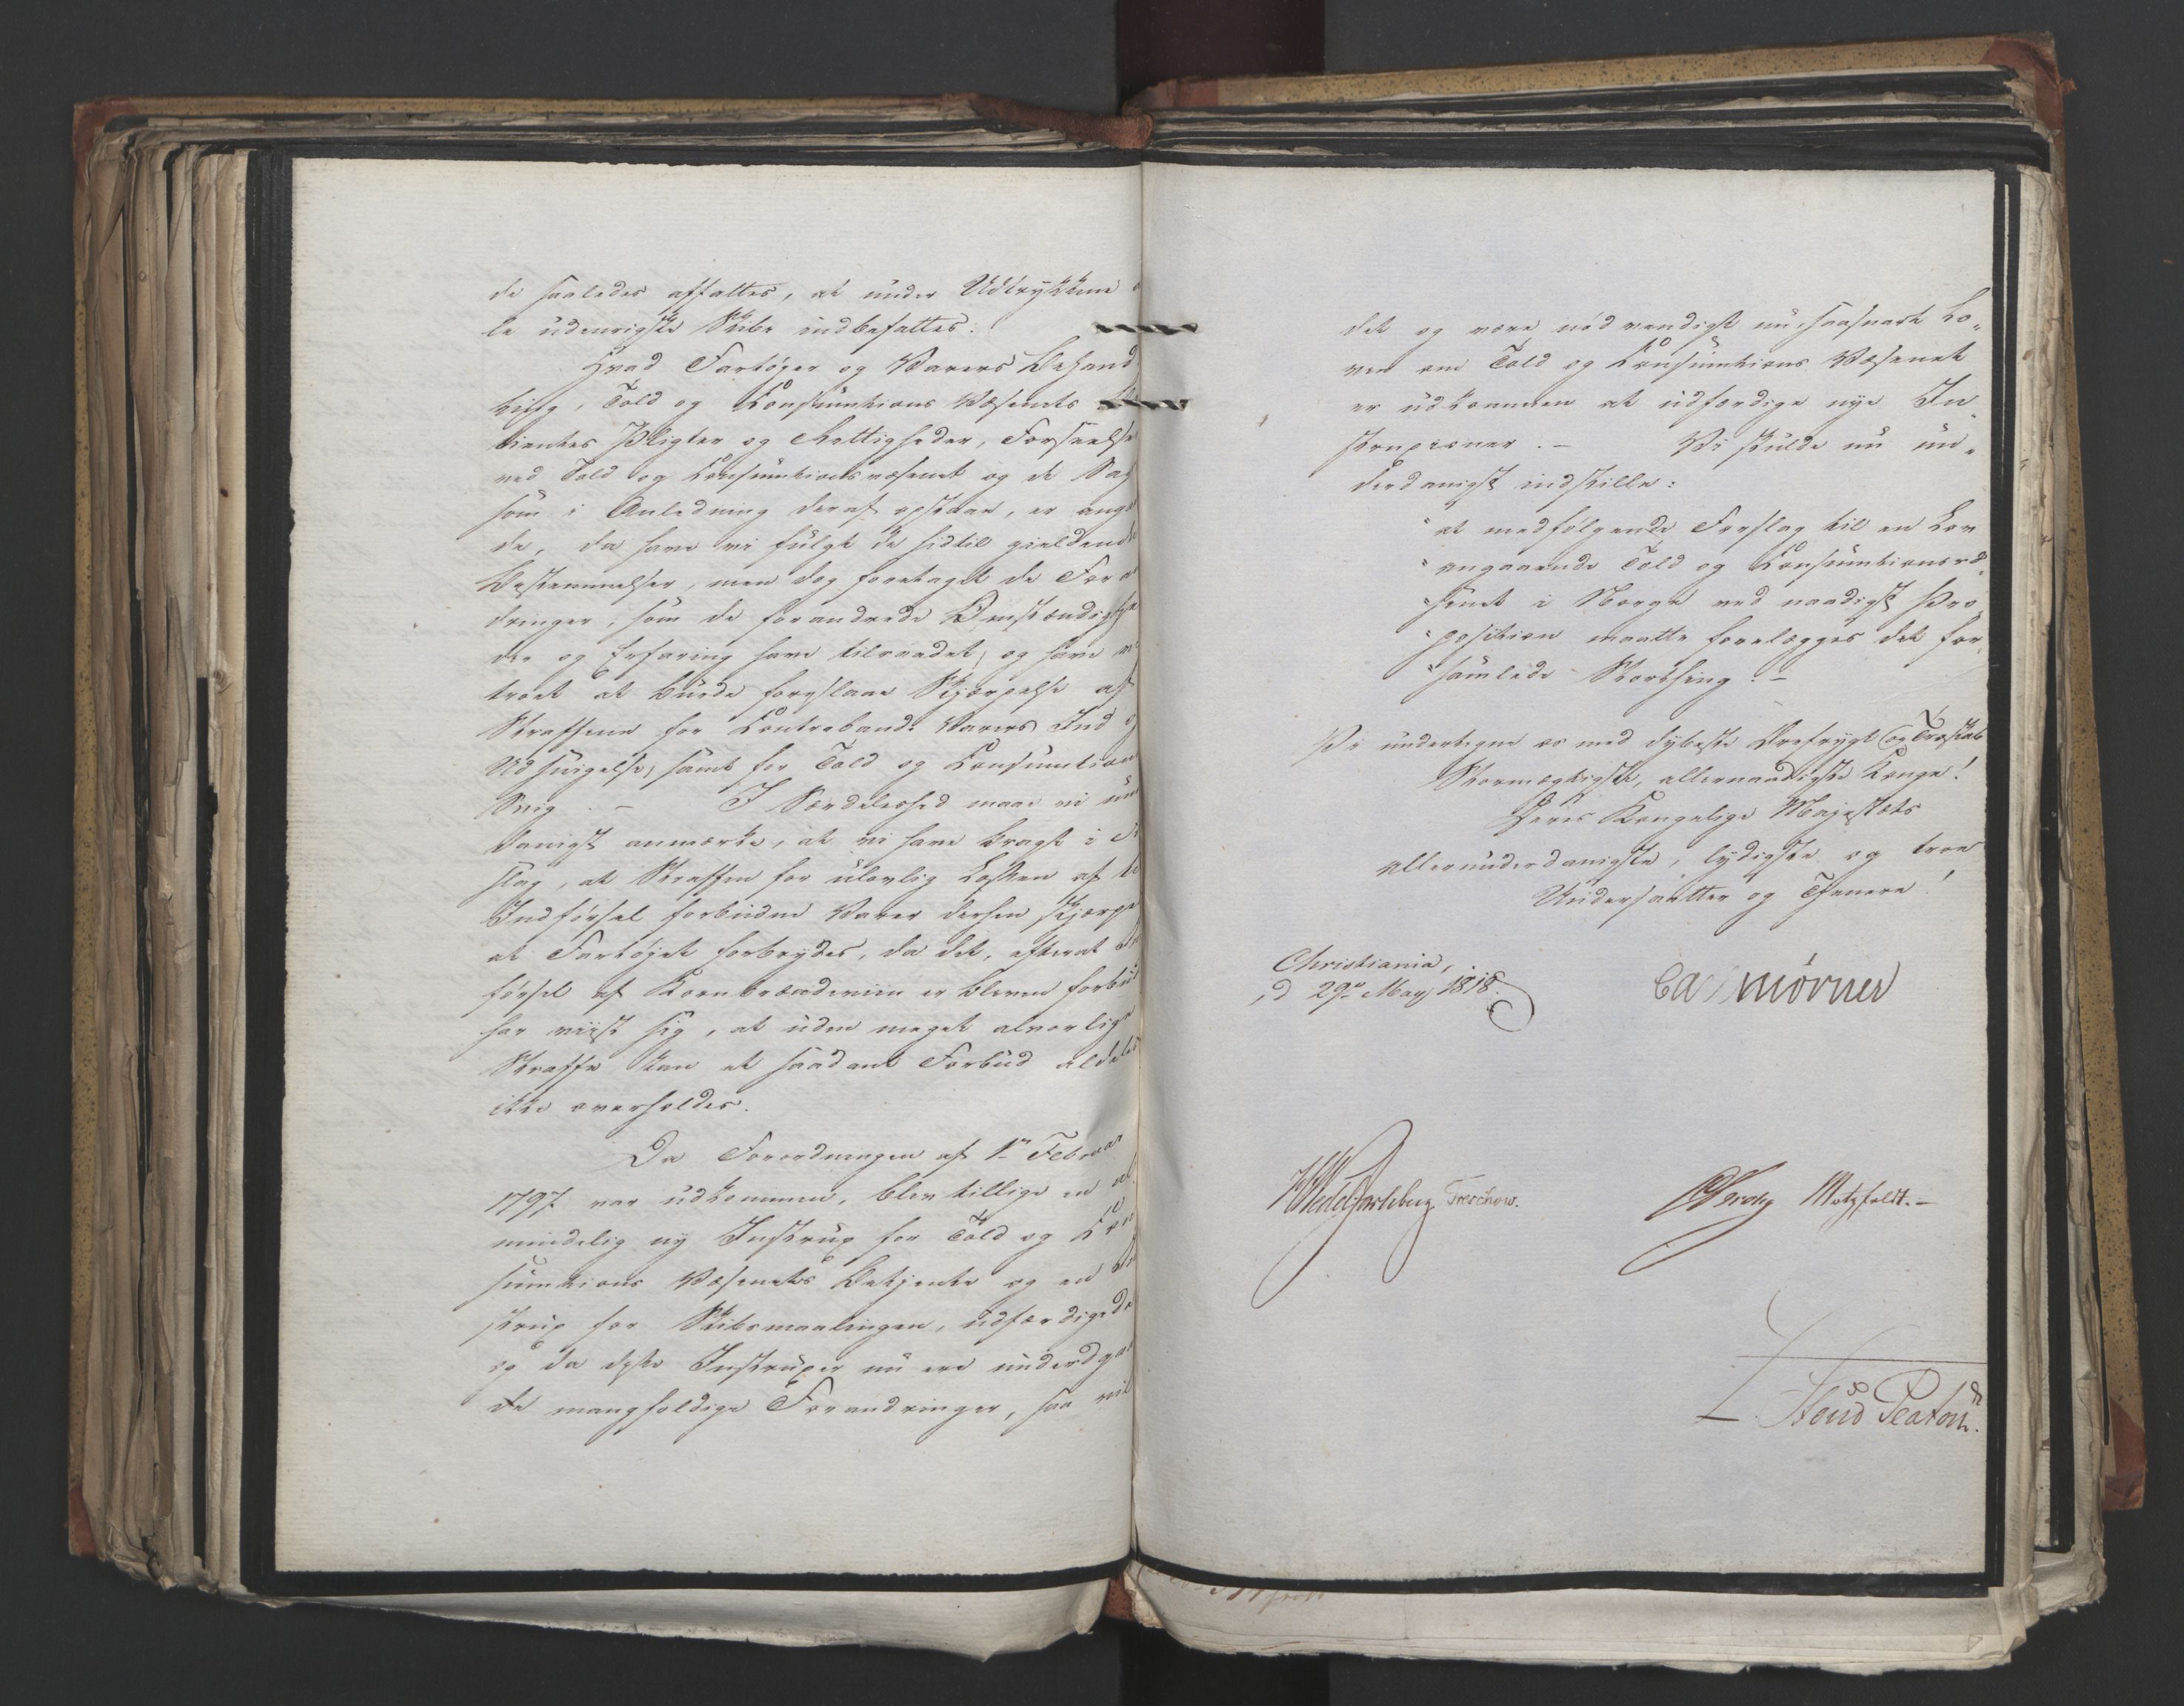 de saaledes affattes, at under Udtrykkene
le udenrigske Skibe indbefattes.
Hvad Fartøyer og Varers Behand
ling, Told og Consumtions Væsenets
tientes Pligter og Rettigheder, Forseelse
ved Told og Consumtionsvæsenet og de Sag
som i Anledning deraf opstaae, er angaa
de, da have vi fulgt de hidtil gieldende
Bestemmelser, men dog foretaget de Foran
dringer, som de forandrede Omstændighe
der og Erfaring have tilraadet, og have vi
troet at burde foreslaae Skjærpelse af
Straffene for Contrabande Varers Ind og
Udsnigelse, samt for Told og Consumtions
Svig. – I Særdeleshed maae vi un
danigst anmærke, at vi have bragt i F
slag, at Straffen for ulovlig Losken af til
Indførsel forbudne Varer derhen skjærpes
at Fartøjet forbrydes, da det, efterat In
førsel af Kornbrændeviin er bleven forbudt
har viist sig, at uden meget alvorlige
Straffe kan et saadant Forbud aldeles
ikke overholdes.
Da Forordningen af 1ste Februar
1797 var udkommen, blev tillige en al
mindelig ny Instrux for Told og Con
sumtions Væsenets Betjente og en In
strux for Skibsmaalingen, udfærdigede
og da disse Instruxer nu ere undergaa
de mangfoldige Forandringer, saa vil
det og være nødvendigt nu, saasnart Lo„
ven om Told og Consumtions Væsenet
er udkommen at udfærdige nye In„
struxioner. – Vi skulde nu un„
derdanigst indstille:
"at medfølgende Forslag til en Lov
"angaaende Told og Consumtionsvæ„
"senet i Norge ved naadigst Pro„
"position maatte forelægges det for„
"samlede Storthing. –
Vi undertegne os med dybeste Ærefrygt og Troskab
Stormægtigste, allernaadigste Konge!
Deres Kongelige Majestæts
allerunderdanigste, lydigste og troe
Undersaatter og Tjenere!
Christiania,
d 29de May 1818.
CA Mörner
HWedelJarlsberg Treschow.
Motzfeldt. –